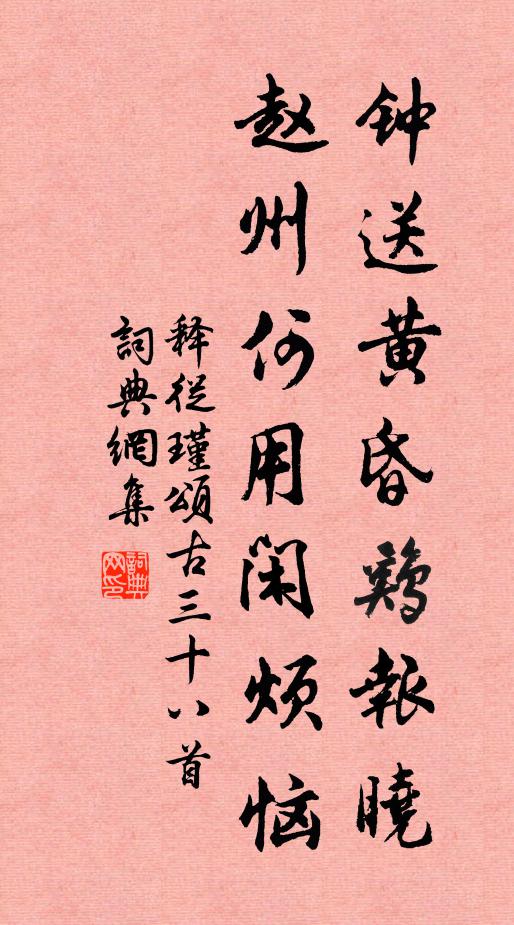 钟送黄昏鷄報曉
赵州何用闲烦恼
释従瑾頌古三十八首
詞典網集
詞典网印